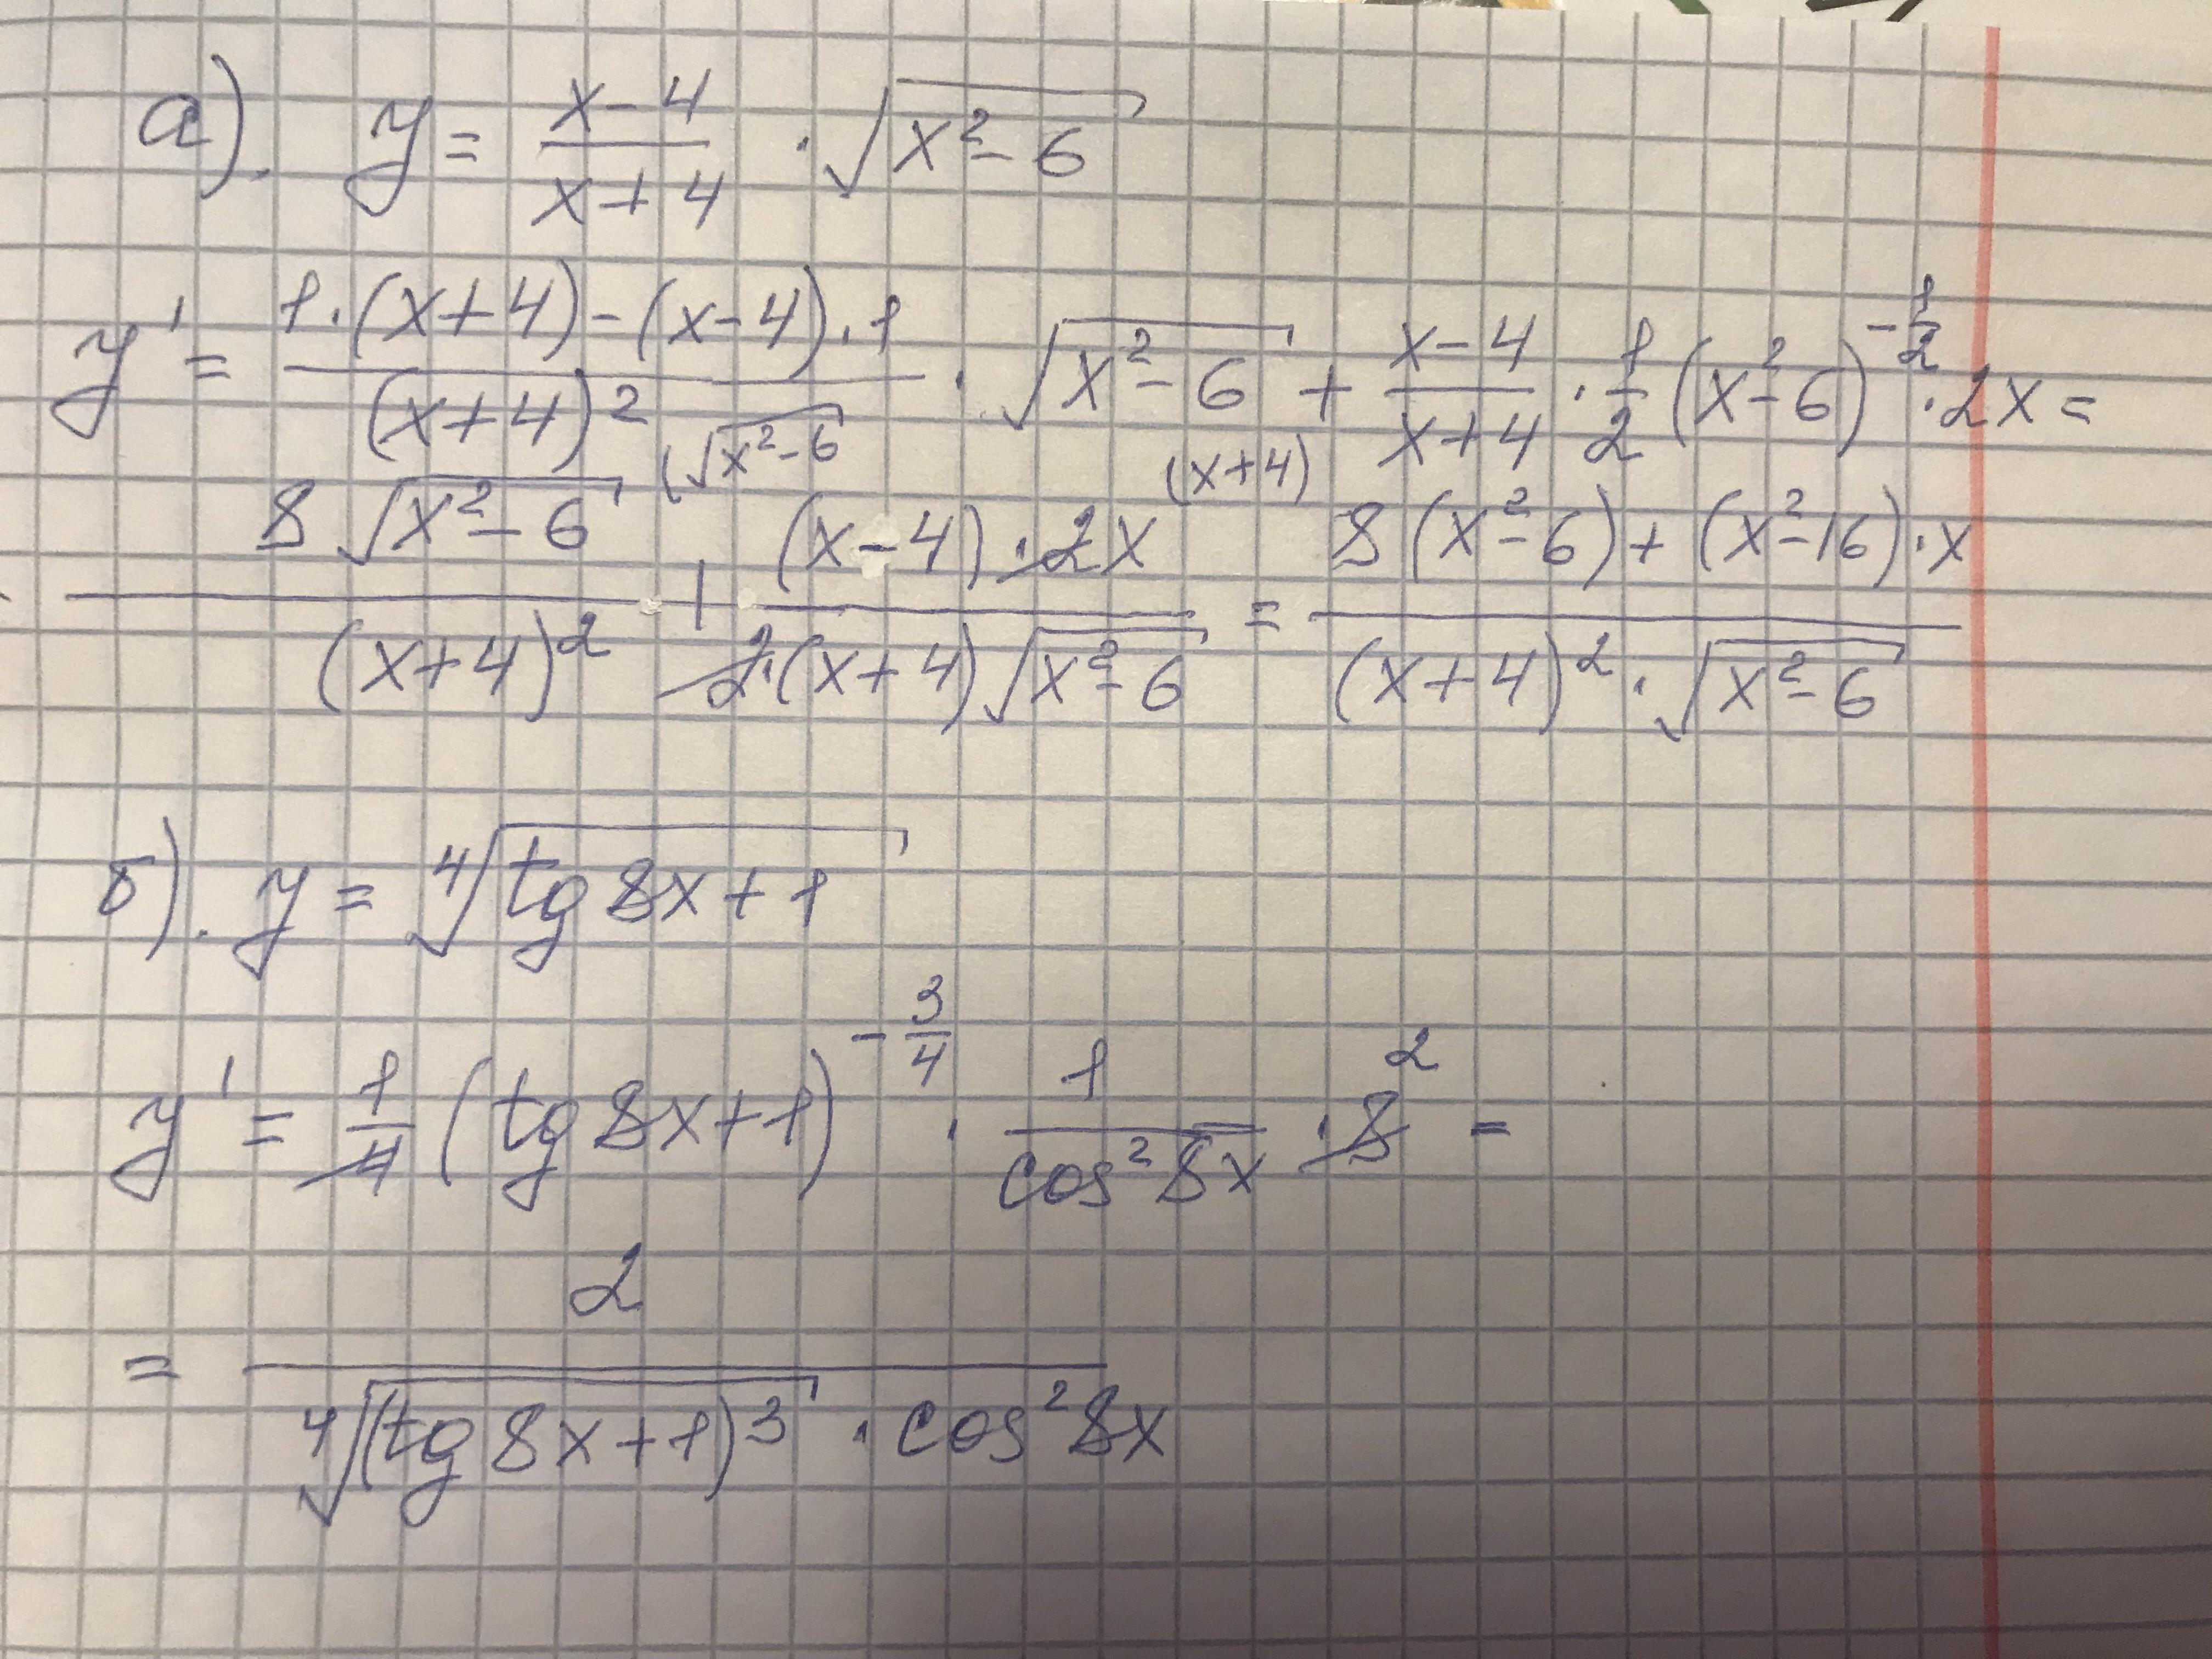 а). y = (x-4)/(x+4) · √(x²-6)
y' = (1·(x+4)-(x-4)·1)/(x+4)² · √(x²-6) + (x-4)/(x+4) · 1/2 (x²-6)^(-1/2) · 2x =
(8√(x²-6))/(x+4)² (√(x²-6) + ((x-4)·2x)/(2·(x+4)√(x²-6)) (x+4) = (8(x²-6)+(x²-16)·x)/((x+4)²·√(x²-6))
б). y = ⁴√(tg 8x+1)
y' = 1/4 (tg 8x+1)^(-3/4) · 1/(cos² 8x) · 8 2 =
= 2/(⁴√((tg 8x+1)³) · cos² 8x)